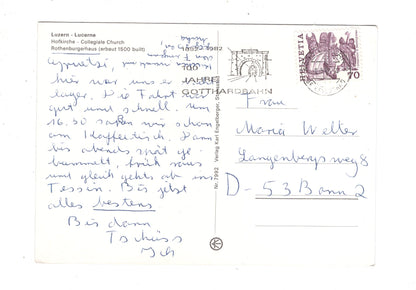 Luzern - Lucerne
Hofkirche - Collegiate Church
Rothenburgerhaus (erbaut 1500 built)
1882-1982
JAHRE
GOTTHARDBAHN
HELVETIA
70
hier war uns er
lager. Die Fahrt war
gut und schnell. Um
16.30 saßen wir schon
am Kaffeetisch. Dann
bis abends spät ge-
bummelt, früh raus
und gleich gehts ab ins
Tessin. Bis jetzt
alles bestens
Bis dann
Tschüss
Ich
Verlag Karl Engelberger
Nr. 7992
Frau
Maria Welter
Langenbergsweg 8
D-53 Bonn 2